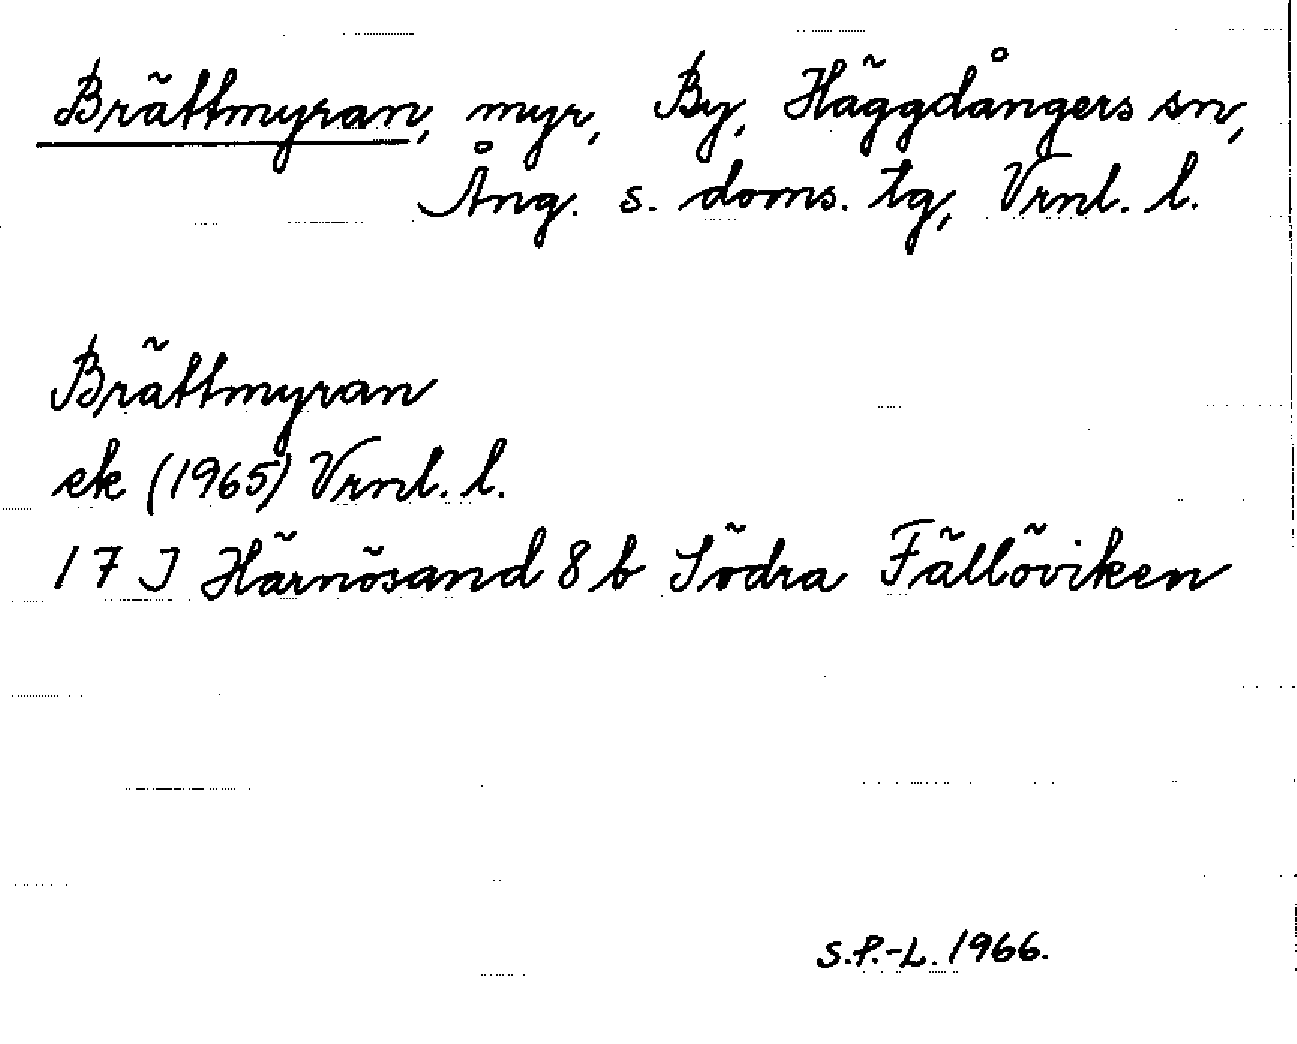 Brättmyran, myr, By, Häggdångers sn,
Ång. s. doms. tg, Vrnl. l.
Brättmyran
ek (1965) Vrnl. l.
17 I Härnösand 8 b Södra Fällöviken
S.P.-L. 1966.